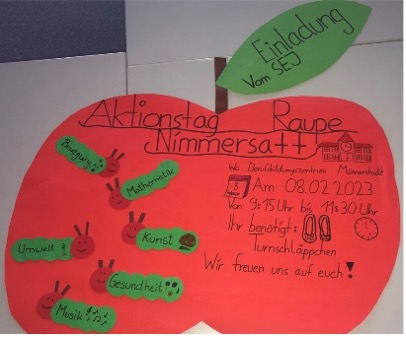 Einladung
Vom SEJ
Aktionstag Raupe
Nimmersatt
Bewegung
Mathematik
Kunst
Umwelt
Gesundheit
Musik
Wo Berufsbildungszentrum Münnerstadt
Am 08.02.2023
Von 9:15 Uhr bis 11:30 Uhr
Ihr benötigt:
Turnschläppchen
Wir freuen uns auf euch!